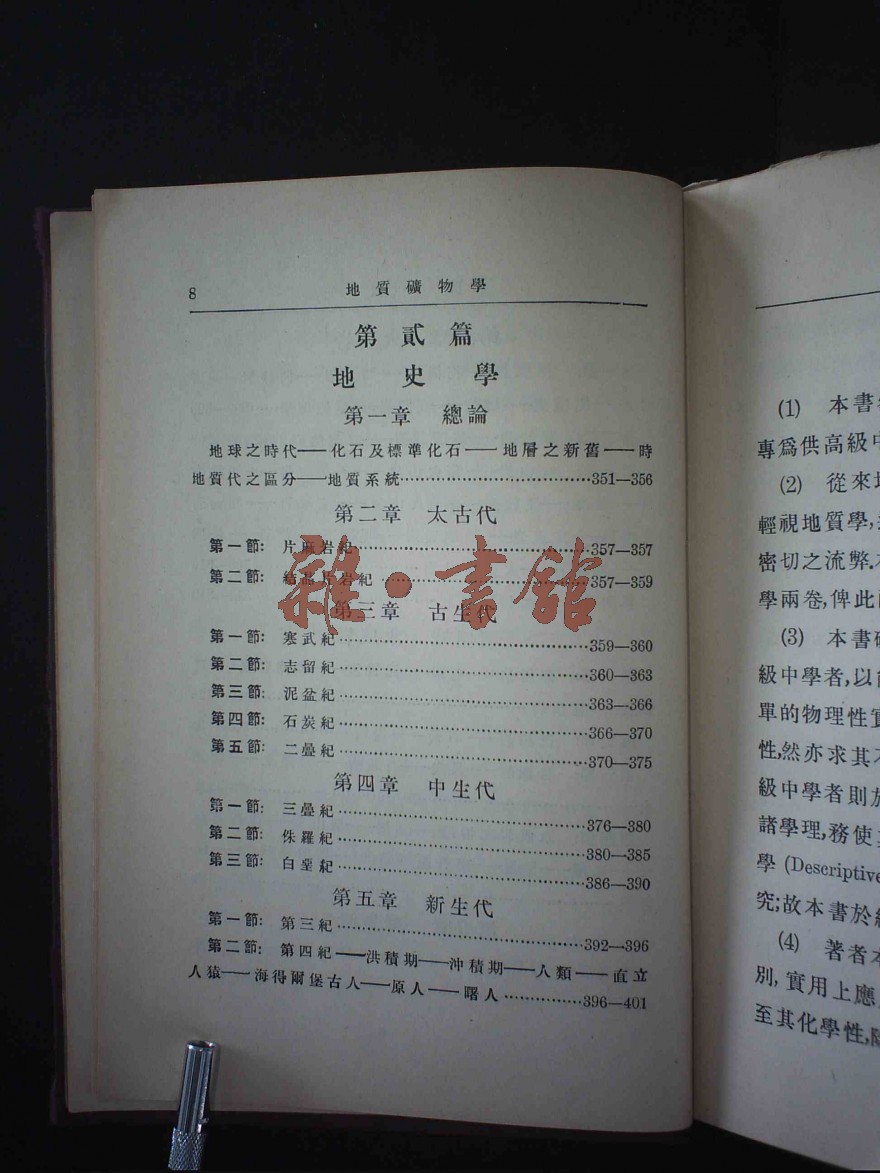 8 地質礦物學
第貳篇
地史學
第一章 總論
地球之時代——化石及標準化石——地層之新舊——時
地質代之區分——地質系統……351—356
第二章 太古代
第一節: 片麻岩紀……357—357
第二節: 結晶片岩紀……357—359
第三章 古生代
第一節: 寒武紀……359—360
第二節: 志留紀……360—363
第三節: 泥盆紀……363—366
第四節: 石炭紀……366—370
第五節: 二疊紀……370—375
第四章 中生代
第一節: 三疊紀……376—380
第二節: 侏羅紀……380—385
第三節: 白堊紀……386—390
第五章 新生代
第一節: 第三紀……392—396
第二節: 第四紀——洪積期——沖積期——人類——直立
人猿——海得爾堡古人——原人——曙人……396—401
雜·書館
(1) 本書
專爲供高級中
(2) 從來
輕視地質學,
密切之流弊.
學兩卷,俾此
(3) 本書
級中學者,以
單的物理性
性,然亦求其
級中學者則於
諸學理,務使
學 (Descriptive
究;故本書於
(4) 著者
別,實用上應
至其化學性,